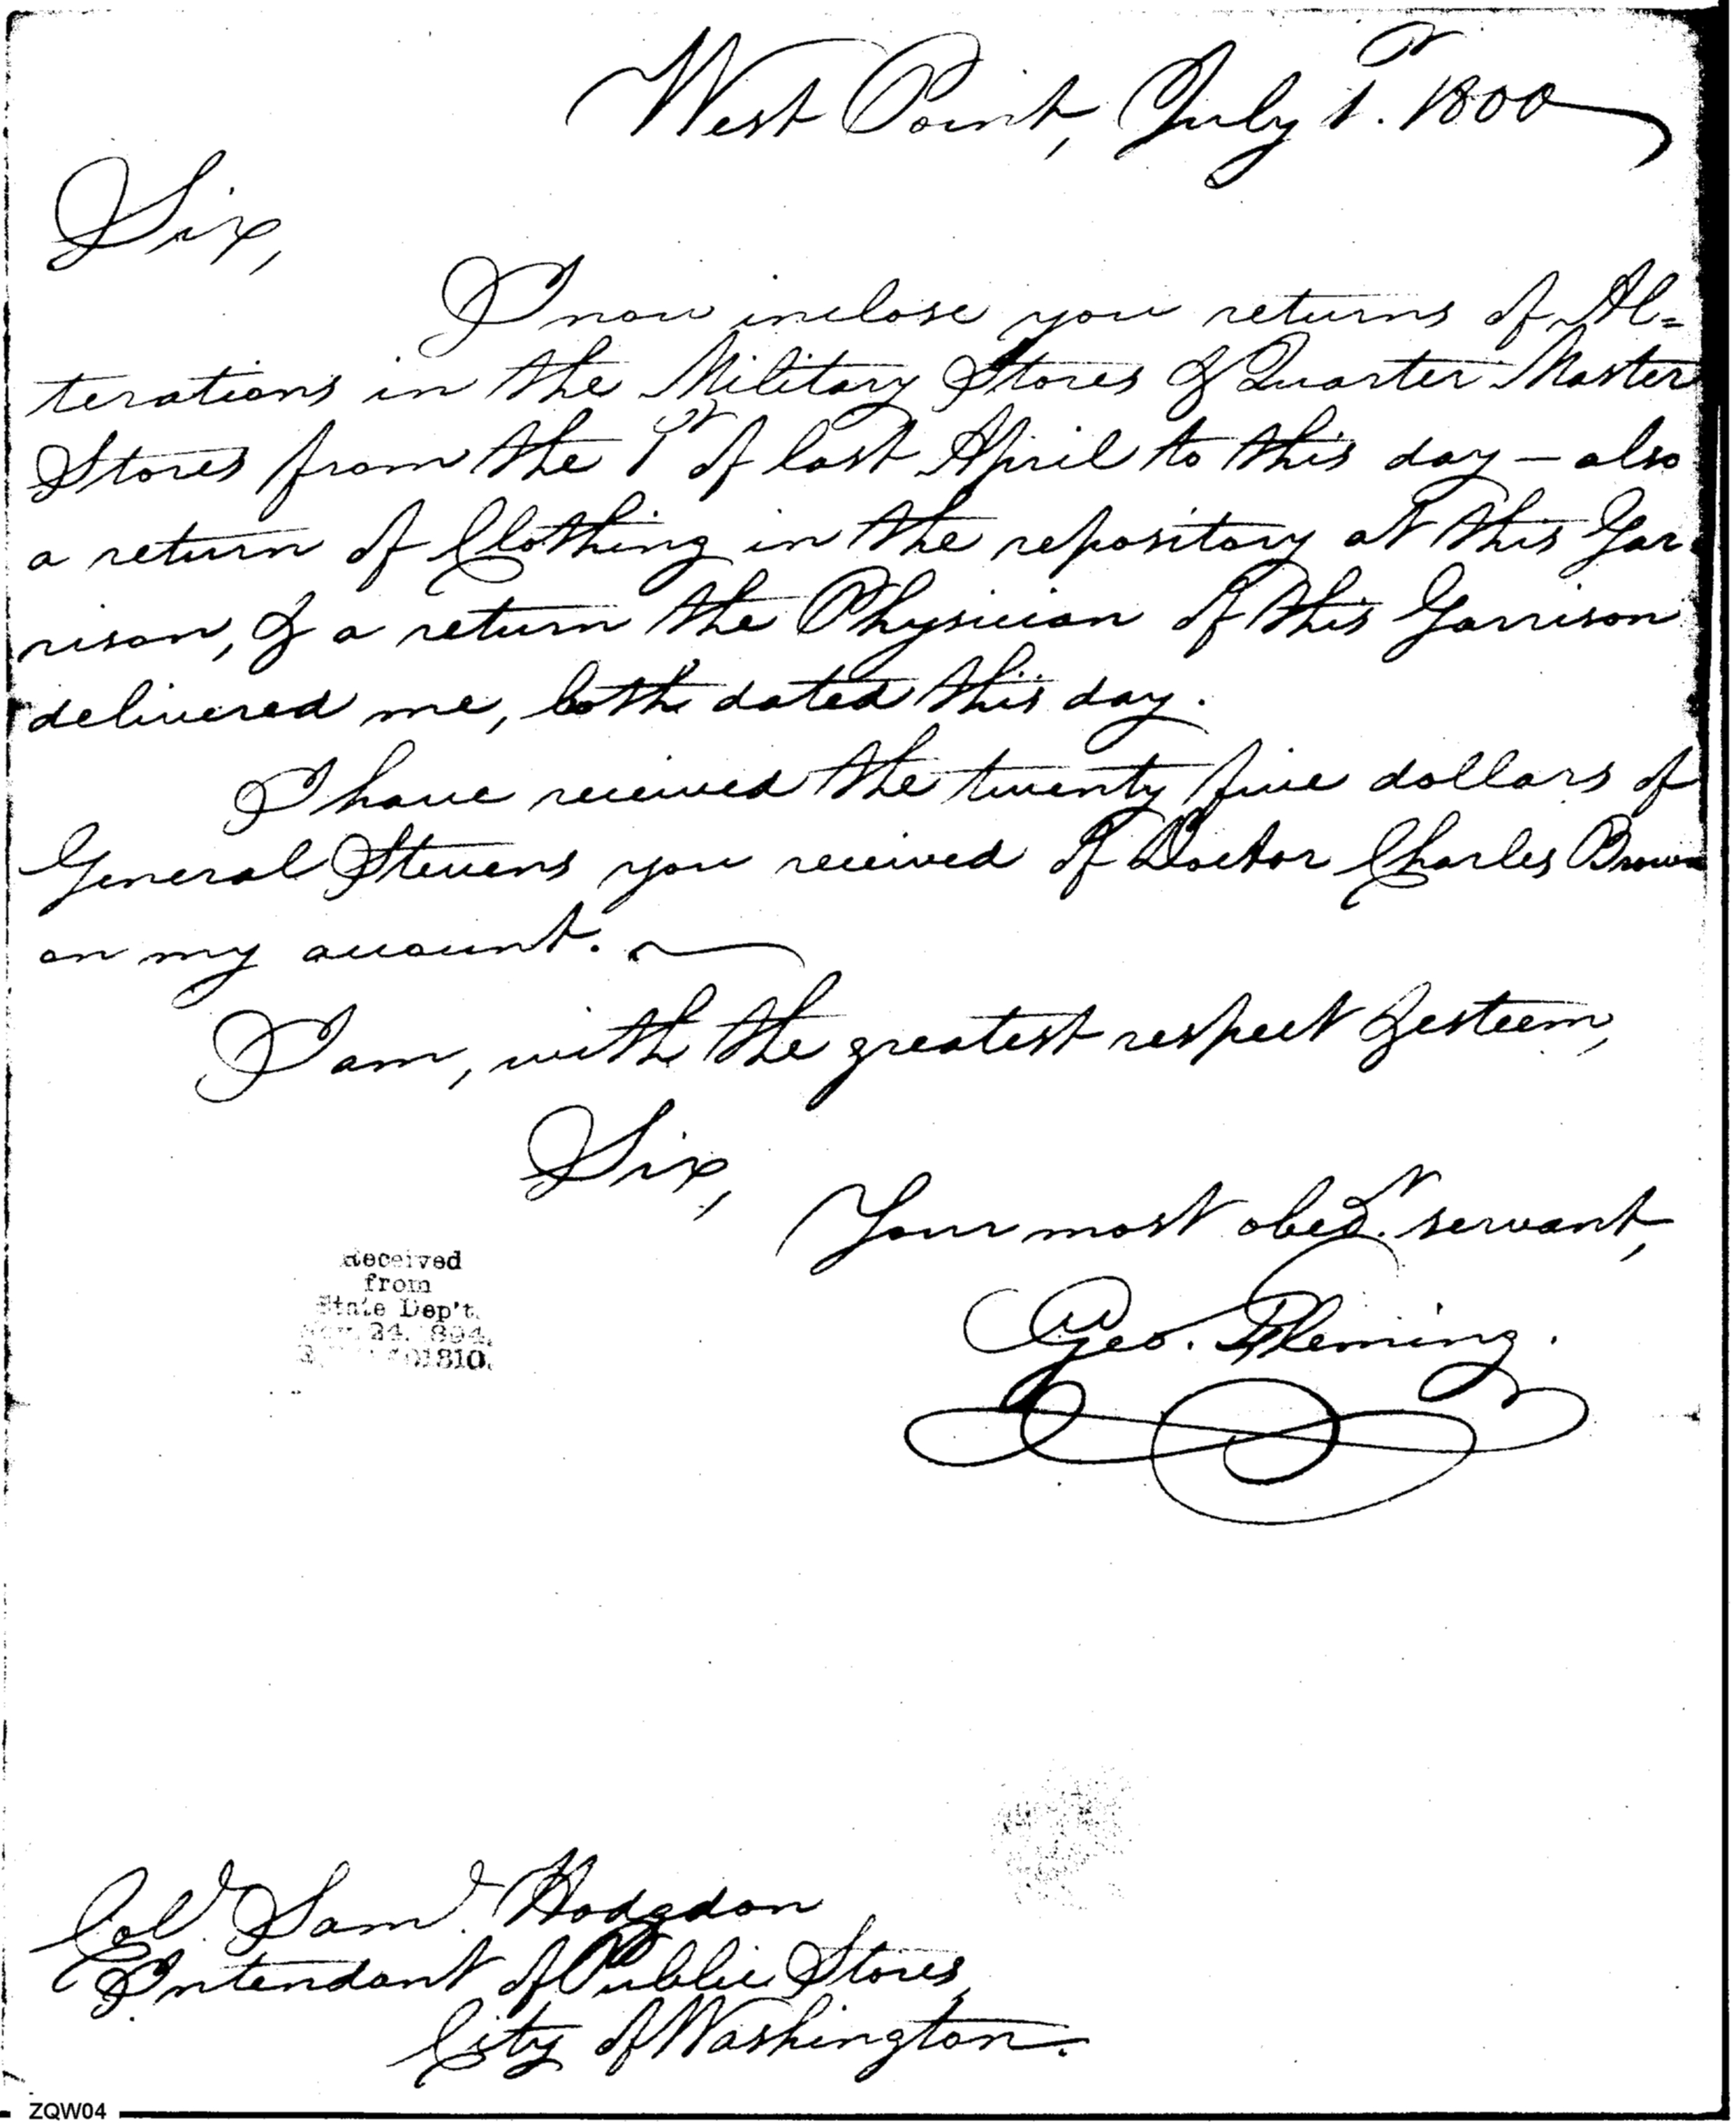 West Point, July 1st. 1800
Sir,
I now inclose you returns of Al=
terations in the Military Stores & Quarter Master
Stores from the 1st of last April to this day — also
a return of Clothing in the repository at this Gar-
rison, & a return the Physician of this Garrison
delivered me, both dated this day.
I have received the twenty five dollars of
General Stevens you received of Doctor Charles Brown
on my account.
I am, with the greatest respect & esteem,
Sir,
Your most obedt. servant,
Geo. Fleming.
Received
from
State Dep't.
24, 1894,
1310.
Colo. Saml. Hodgdon
Intendant of Public Stores,
City of Washington.
ZQW04